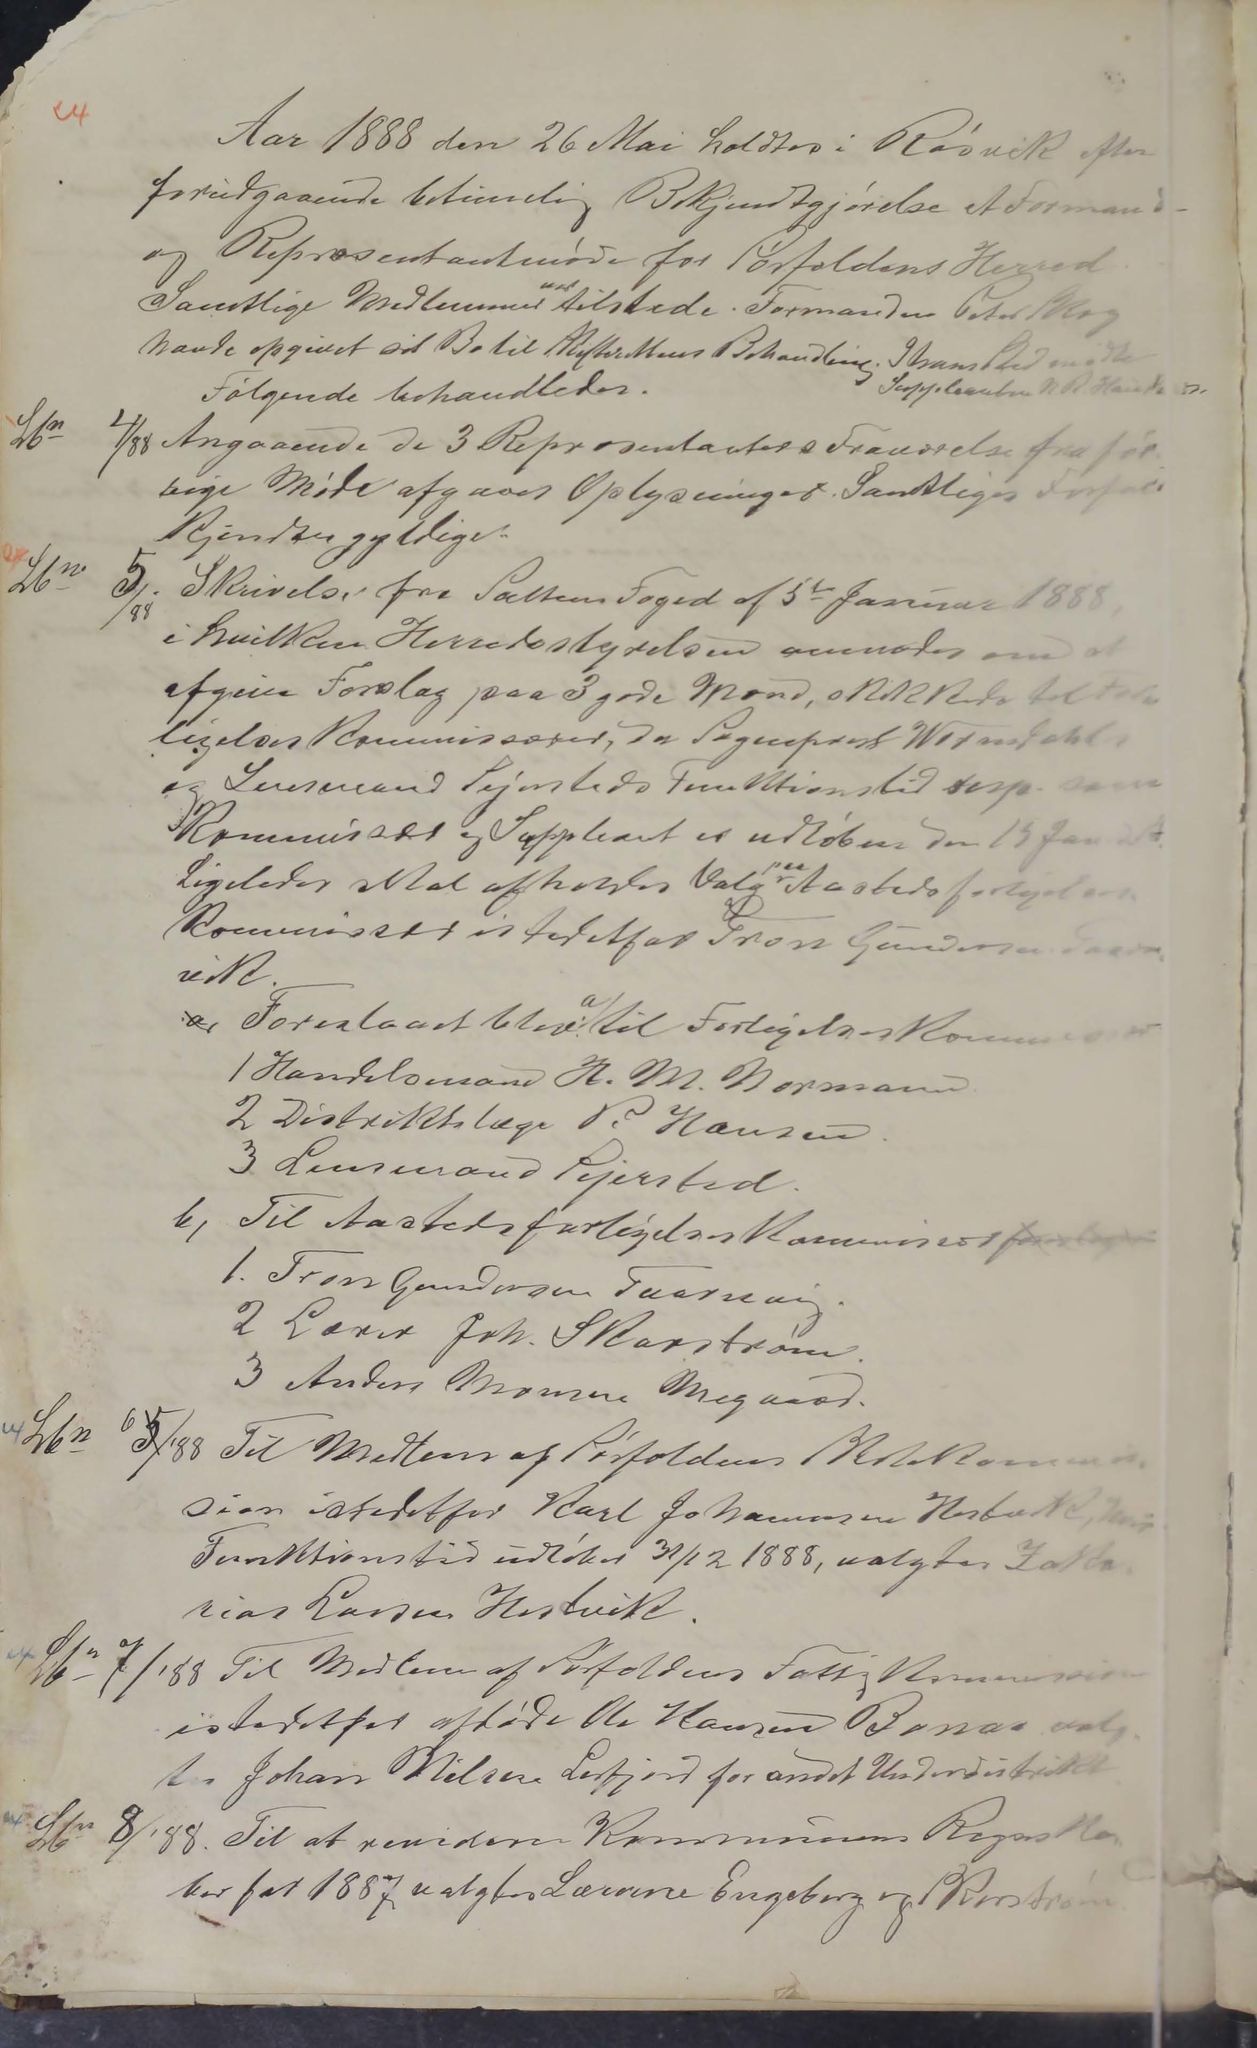 Aar 1888 den 26 Mai holdtes i Røsvik efter
forudgaaende betimelig Bekjendtgjørelse et Formand-
og Repræsentantmøde for Sørfoldens Herred.
Samtlige Medlemmer var tilstede. Formanden Peter Skog
havde opgivet sit Bo til Skifterettens Behandling. I hans Sted mødte
Suppleanten N. R. Hansen.
Følgende behandledes.
Lbn 4/88 Angaaende de 3 Repræsentanters Fraværelse fra før-
rige Møde afgaves Oplysninger. Samtliges Forfald
kjendtes gyldige.
Lbn 5/88. Skrivelse fra Saltens Foged af 5te Januar 1888,
i hvilken Herredsstyrelsen anmodes om at
afgive Forslag paa 3 gode Mænd, skikkede til For-
ligelses Kommissærer, da Sogneprest Wormdahls
og Lensmand Sejersteds Funktionstid resp. som
Kommissær og Suppleant er udløben den 15 Jan
Ligeledes skal afholdes Valg paa Aastedsforligelses
Kommissær istedetfor Tron Gundersen Taarn-
vik.
a, Foreslaaet blev a/ til Forligelses Kommissær
1 Handelsmand H. M. Normann
2 Distriktslæge P. Hansen.
3 Lensmand Sejersted.
b, Til Aastedsforligelses Kommissær
1. Tron Gundersen Taarnvig.
2 Lærer Joh. Skarstrøm.
3 Anders Monsen Megaard.
Lbn 6/88 Til Medlem af Sørfoldens Skolekommis-
sion istedetfor Karl Johannesen Hestvik, hvis
Funktionstid udløber 31/12 1888, valgtes Zaka-
rias Larsen Hestvik.
Lbn 7/88 Til Medlem af Sørfoldens Fattig Kommission
istedetfor afdøde Ole Hansen Bonaa valg-
tes Johan Nilsen Leifjord for andet Underdistrikt
Lbn 8/88. Til at revidere Kommunens Regnska-
ber for 1887 valgtes Lærerne Engeborg og Skarstrøm